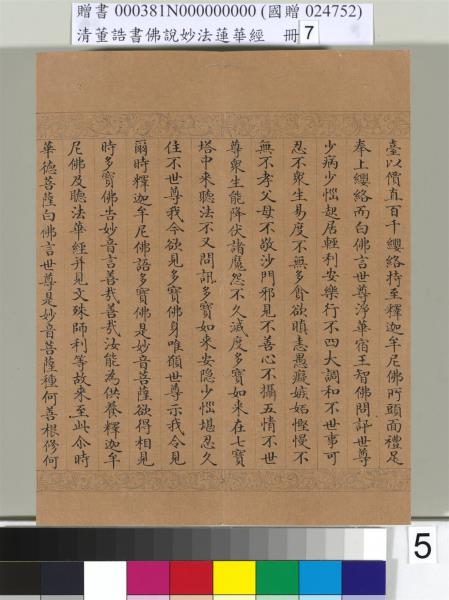 贈書 000381N000000000 (國贈 024752)
清董誥書佛說妙法蓮華經 冊 7
臺以價直百千纓絡持至釋迦牟尼佛所頭面禮足
奉上纓絡而白佛言世尊淨華宿王智佛問訊世尊
少病少惱起居輕利安樂行不四大調和不世事可
忍不衆生易度不無多貪欲瞋恚愚癡嫉妬慳慢不
無不孝父母不敬沙門邪見不善心不攝五情不世
尊衆生能降伏諸魔怨不久滅度多寶如來在七寶
塔中來聽法不又問訊多寶如來安隱少惱堪忍久
住不世尊我今欲見多寶佛身唯願世尊示我令見
爾時釋迦牟尼佛語多寶佛是妙音菩薩欲得相見
時多寶佛告妙音言善哉善哉汝能為供養釋迦牟
尼佛及聽法華經并見文殊師利等故來至此尒時
華德菩薩白佛言世尊是妙音菩薩種何善根修何
5